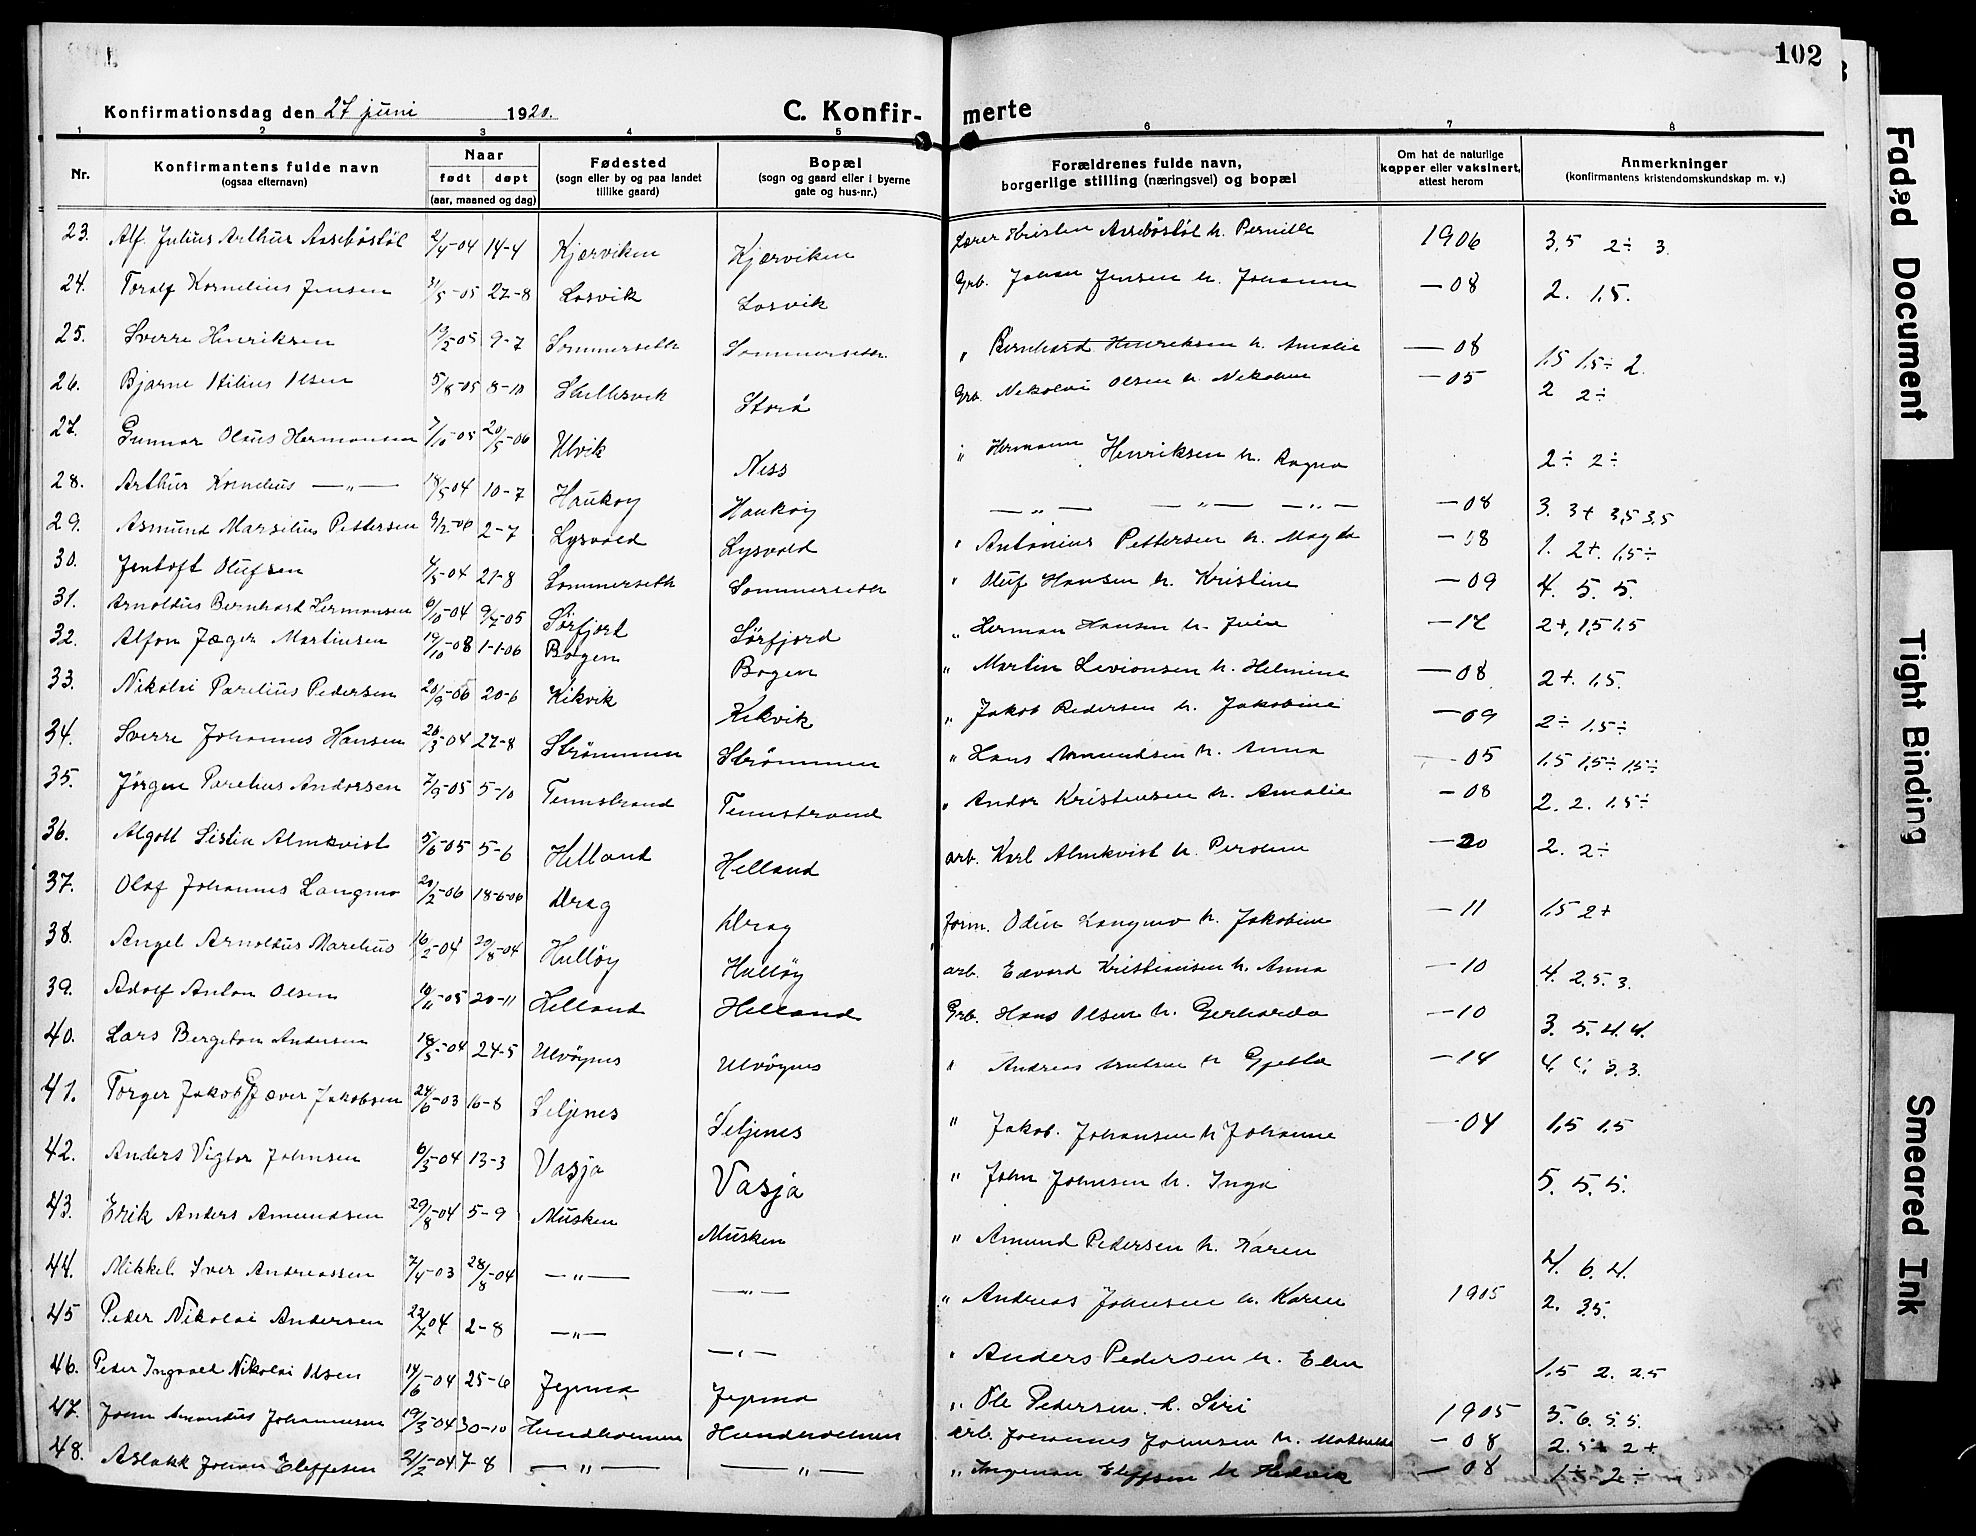 102
Konfirmationsdag den 27 juni 1920.
C. Konfir- merte
1 2 3 4 5 6 7 8
Nr. Konfirmantens fulde navn (ogsaa efternavn) Naar født døpt (aar, maaned og dag) Fødested (sogn eller by og paa landet tillike gaard) Bopæl (sogn og gaard eller i byerne gate og hus-nr.) Forældrenes fulde navn, borgerlige stilling (næringsvei) og bopæl Om hat de naturlige kopper eller vaksinert, attest herom Anmerkninger (konfirmantens kristendomskundskap m. v.)
23. Alf Julius Arthur 2/4-04 14-4 Kjærviken Kjærviken Lærer Kristen h. Pernille 1906 3,5 2÷ 3.
24. Toralf Kornelius Jensen 31/5-05 27-8 Losvik Losvik Grb. Johan Jensen h. Johanne —08 2. 1,5.
25. Sverre Henriksen 9-7 Sommerseth Sommerseth " Bernhard Henriksen h. Amalie —08 1,5 1,5÷ 2.
26. Bjarne Olsen 5/8-05 8-10 Storå Grb. Nikolai Olsen h. —05 2 2÷
27. Gunnar Olaus Hermansen 7/10-05 20/5-06 Ulvik Ness " Hermann Henriksen h. Ragna 2÷ 2÷
28. Arthur Kornelius —"— 18/5-04 10-7 Haukøy Haukøy —"— —"— —"— —08 3. 3+ 3,5 3,5
29. Asmund Marselius Pettersen 2-7 Lysvold Lysvold " Antonius Pettersen h. Magda —08 1. 2+. 1,5÷
30. Jentoft Olufsen 4/5-04 21-8 Sommerseth Sommerseth " Oluf Hansen h. Kristine —09 4. 5. 5.
31. Arnoldus Bernhard Hermansen 6/10-04 9/7-05 Sørfjord Sørfjord " Herman Hansen h. —14 2+, 1,5 1,5
32. Alfon Jæger Martinsen 19/10-08 1-1-06 Bogen Bogen " Martin h. Helmine —08 2+. 1,5.
33. Nikolai Parelius Pedersen 20-6 Kikvik Kikvik " Jakob Pedersen h. Jakobine —09 2÷ 1,5÷
34. Sverre Johannes Hansen 26/3-04 27-8 Strømmen Strømmen " Hans Amundsen h. Anna —05 1,5 1,5÷ 1,5÷
35. Jørgen Parelius Andorsen 7/9-05 5-10 Tennstrand Tennstrand " Andor Kristensen h. Amalie —08 2. 2. 1,5÷
36. Algott Almkvist 5/6-05 5-6 Helland Helland arb. Karl Almkvist h. —20 2. 2÷
37. Olaf Johannes Langmo 20/2-06 18-6-06 Drag Drag form. Odin Langmo h. Jakobine —11 1,5 2+
38. Angel Arnoldus Marelius 16/2-04 20/8-04 Hulløy Hulløy arb. Edvard Kristiansen h. Anna —10 4. 2,5. 3.
39. Adolf Anton Olsen 20-11 Helland Helland Grb. Hans Olsen h. Gerharda —10 3. 5. 4. 4.
40. Lars Bergeton Andersen 18/3-04 24-5 Ulvøynes Ulvøynes " Andreas h —14
41. Torger Jakob Gjæver Jakobsen 24/6-03 16-8 Seljenes Seljenes " Jakob Johansen h Johanne —04 1,5 1,5
42. Anders Vigtor Johnsen 6/3-04 13-3 Vasja Vasja " John Johnsen h. Inga 5. 5. 5.
43. Erik Anders Amundsen 29/8-04 5-9 Musken Musken " Amund Pedersen h. Karen 4. 6. 4.
44. Mikkel Iver Andreassen 7/4-03 28/8-04 —"— —"— " Andreas Johnsen h. Karen 1905 2. 3,5.
45 Peder Nikolai Andersen 23/7-04 2-8 —"— —"— " Anders Pedersen h. Elen 1,5 2. 2,5
46. Peder Ingvald Nikolai Olsen 14/6-04 25-6 " Ole Pedersen h. Siri 1905 5. 6. 5. 5.
47. John Amandus Johannesen 19/3-04 30-10 Hundholmen Hundholmen arb. Johannes Johnsen h. —08 2. 2+
48. Aslakk Johan 21/2-04 7-8 —"— —"— " h Hedvik —08 1÷ 2÷
Faded Document
Tight Binding
Smeared Ink